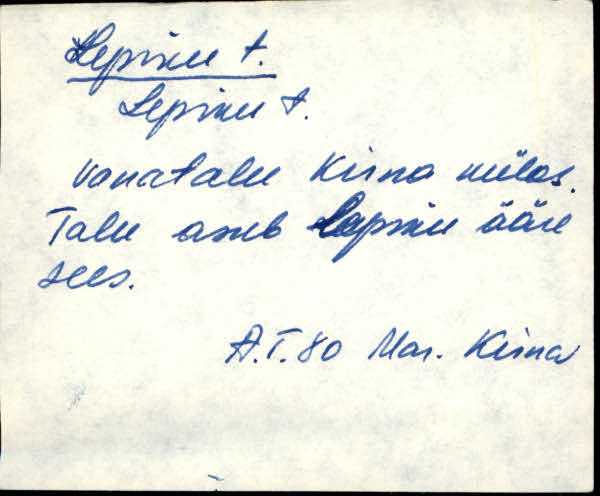 Lepiku t.
Lepiku t.
Vanatalu Kirna külas.
Talu asub Lepiku ääre
sees.
A.T. 80 Mar. Kirna